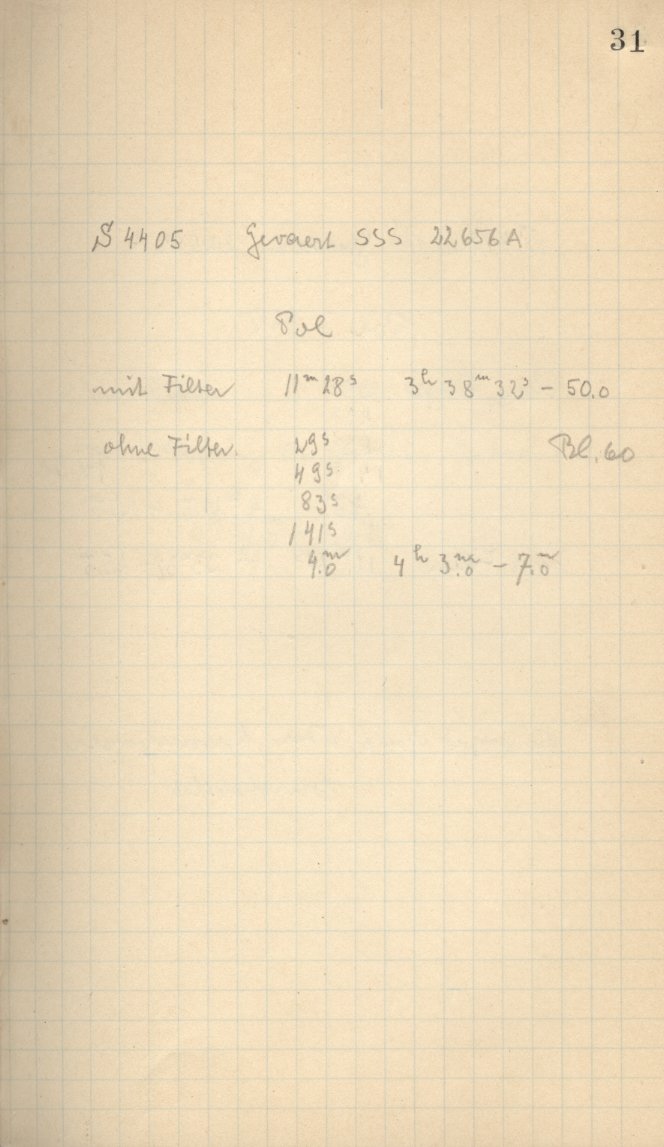 31
S 4405 Gevaert SSS 22656A
Pol
mit Filter 11ᵐ28ˢ 3ʰ38ᵐ32ˢ – 50.0
ohne Filter. 29ˢ Bl. 60
49ˢ
83ˢ
141ˢ
4.ᵐ0 4ʰ 3.ᵐ0 – 7.ᵐ0